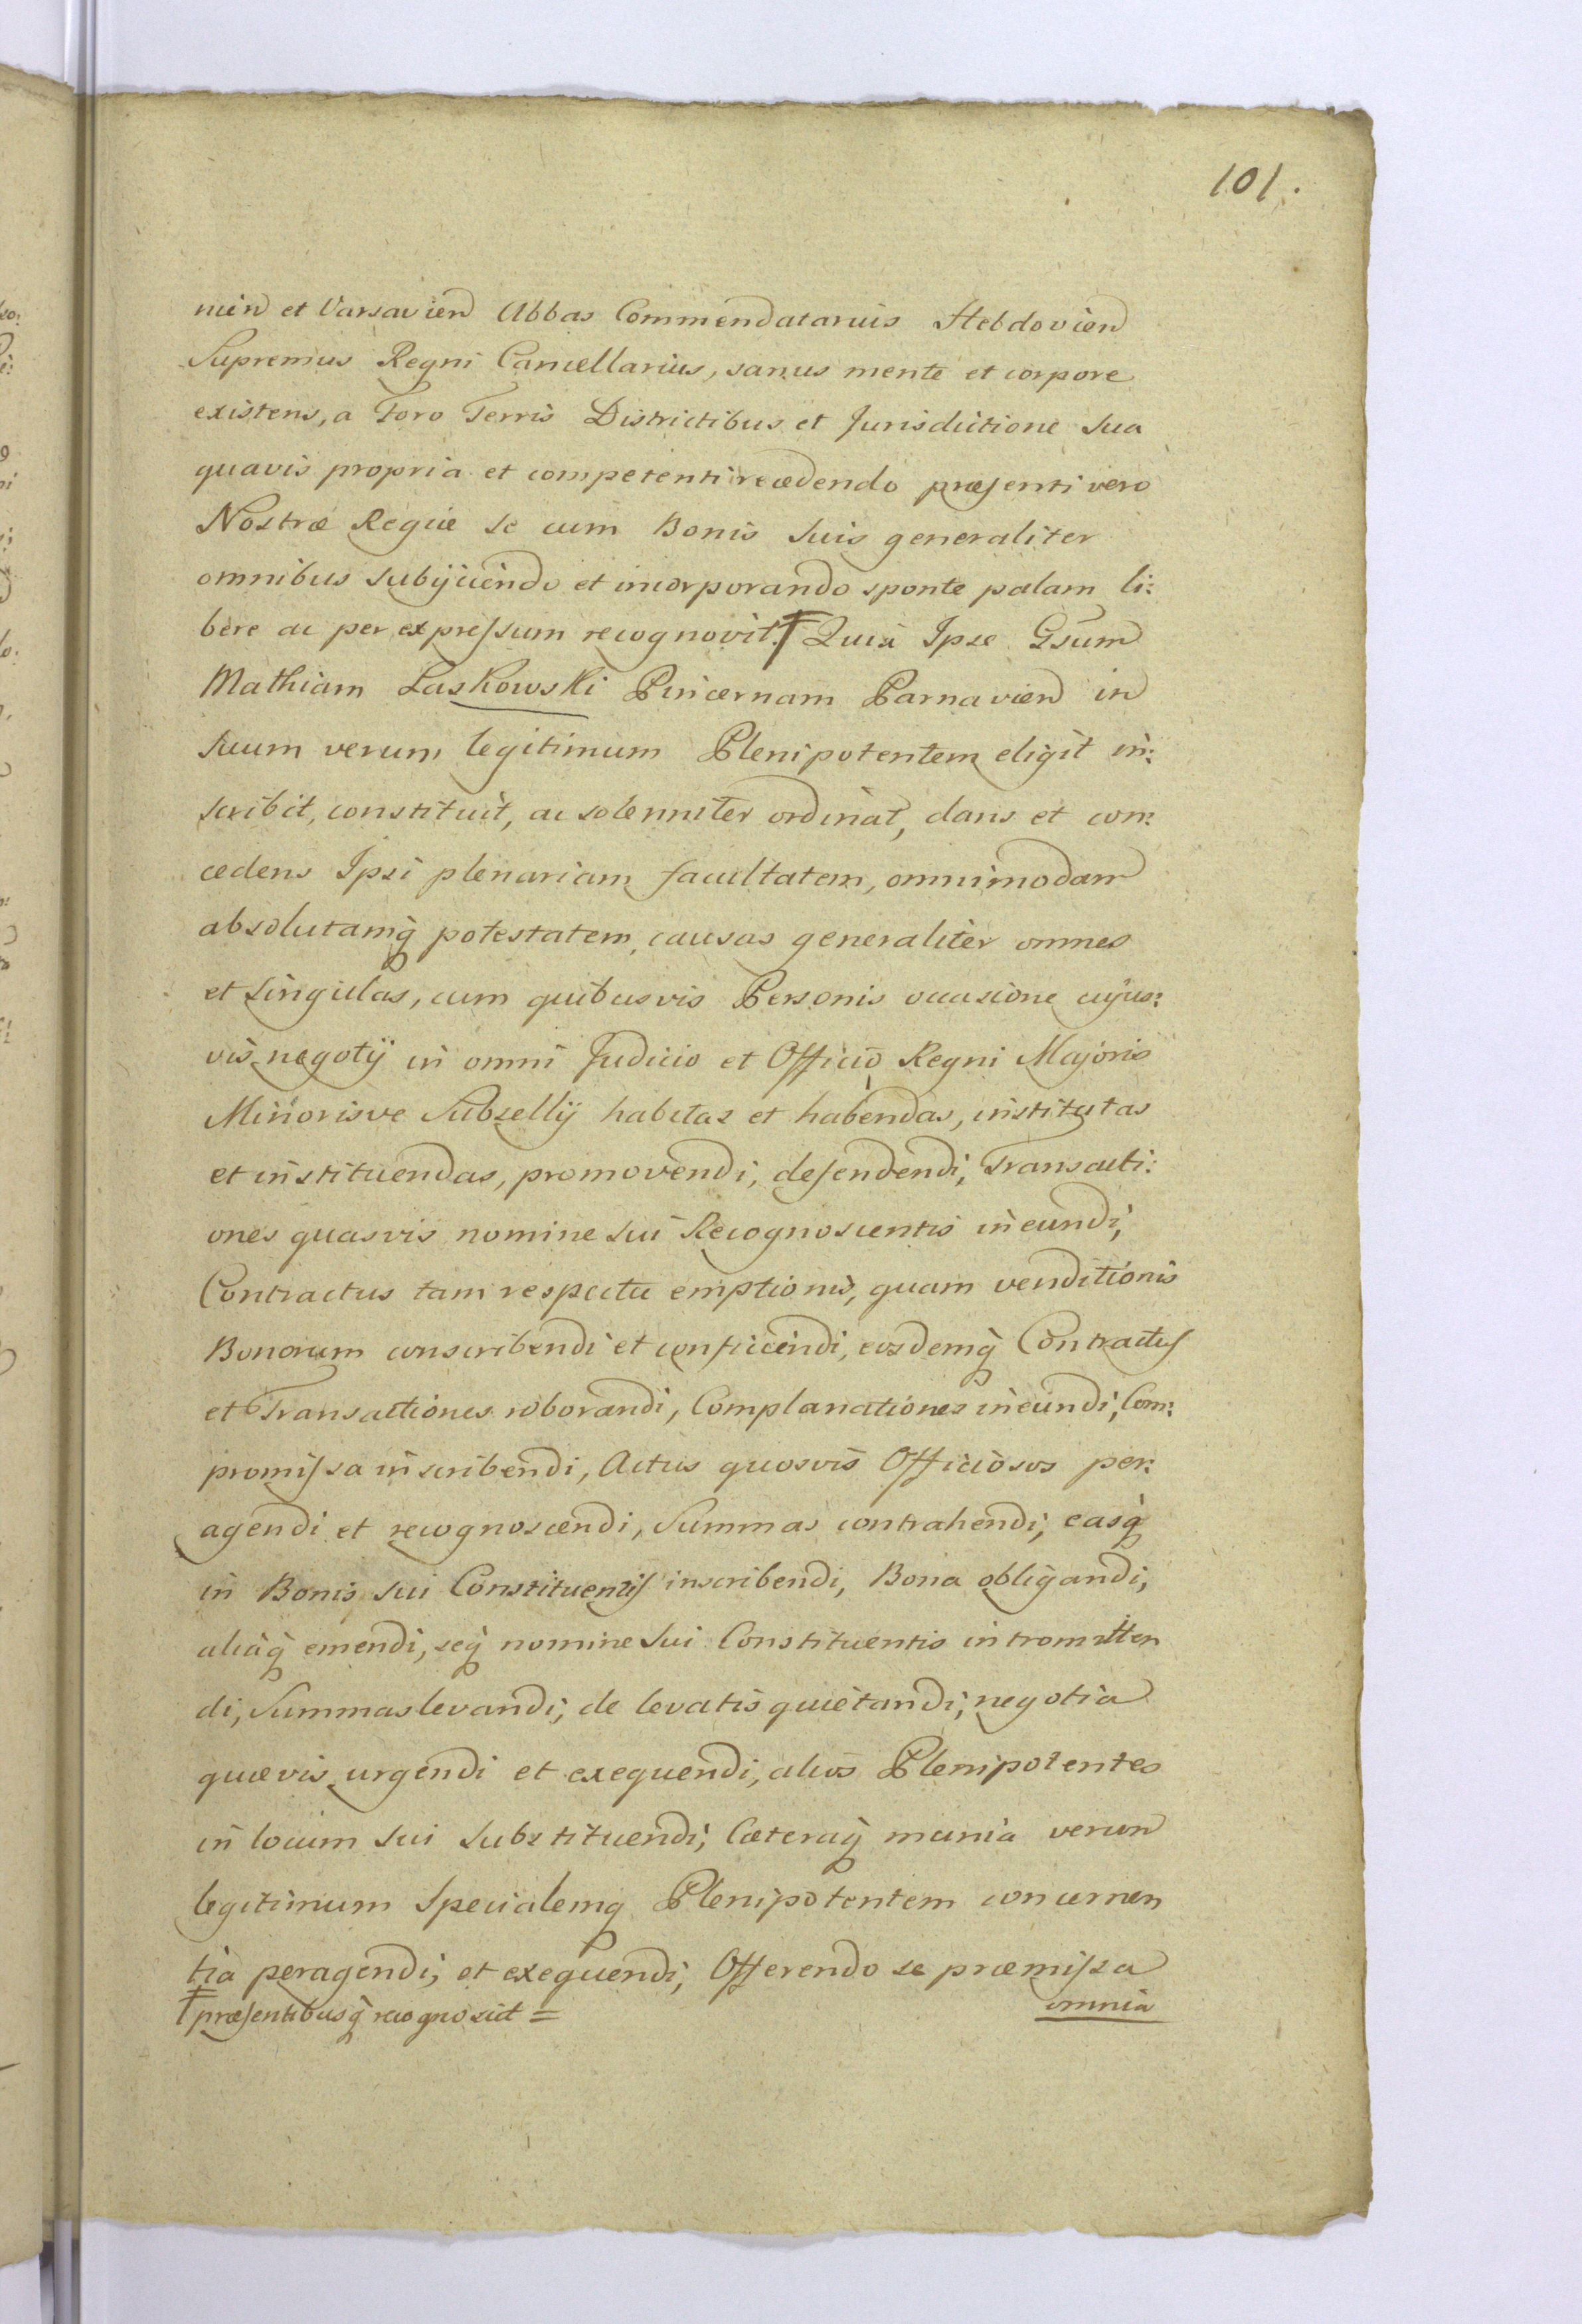 101.
nien et Varsavien Abbas Commendatarius Hebdovien
Supremus Regni Cancellarius, sanus mente et corpore
existens, a Foro Terris Districtibus et Jurisdictione sua
quavis propria et competenti recedendo præsenti vero
Nostræ Regiæ se cum Bonis suis generaliter
omnibus subijciendo et incorporando sponte palam li:
bere ac per expressum recognovit.‡ Quia Ipse Gsum
Mathiam Laskowski Pincernam Parnavien in
suum verum legitimum Plenipotentem eligit in:
scribit, constituit, ac solenniter ordinat, dans et con:
cedens Ipsi plenariam facultatem, omnimodam
absolutamq̀ potestatem, causas generaliter omnes
et singulas, cum quibusvis Personis occasione cujus:
vis negotij in omni Judicio et Officio Regni Majoris
Minorisve Subsellij habitas et habendas, institutas
et instituendas, promovendi, defendendi, Transacti:
ones quasvis nomine sui Recognoscentis ineundi,
Contractus tam respectu emptionis, quam venditionis
Bonorum conscribendi et conficiendi, eosdemq̀ Contractus
et Transactiones roborandi, Complanationes ineundi, Com:
promissa inscribendi, Actus quosvis Officiosos per:
agendi et recognoscendi, Summas contrahendi, easq̀
in Bonis sui Constituentis inscribendi, Bona obligandi,
aliaq̀ emendi, seq̀ nomine sui Constituentis intromitten
di, Summas levandi, de levatis quietandi, negotia
quævis urgendi et exequendi, alios Plenipotentes
in locum sui substituendi, Cæteraq̀ munia verum
legitimum Specialemq̀ Plenipotentem concernen
tia peragendi, et exequendi, Offerendo se præmissa
‡ præsentibusq̀ recognoscit =
omnia